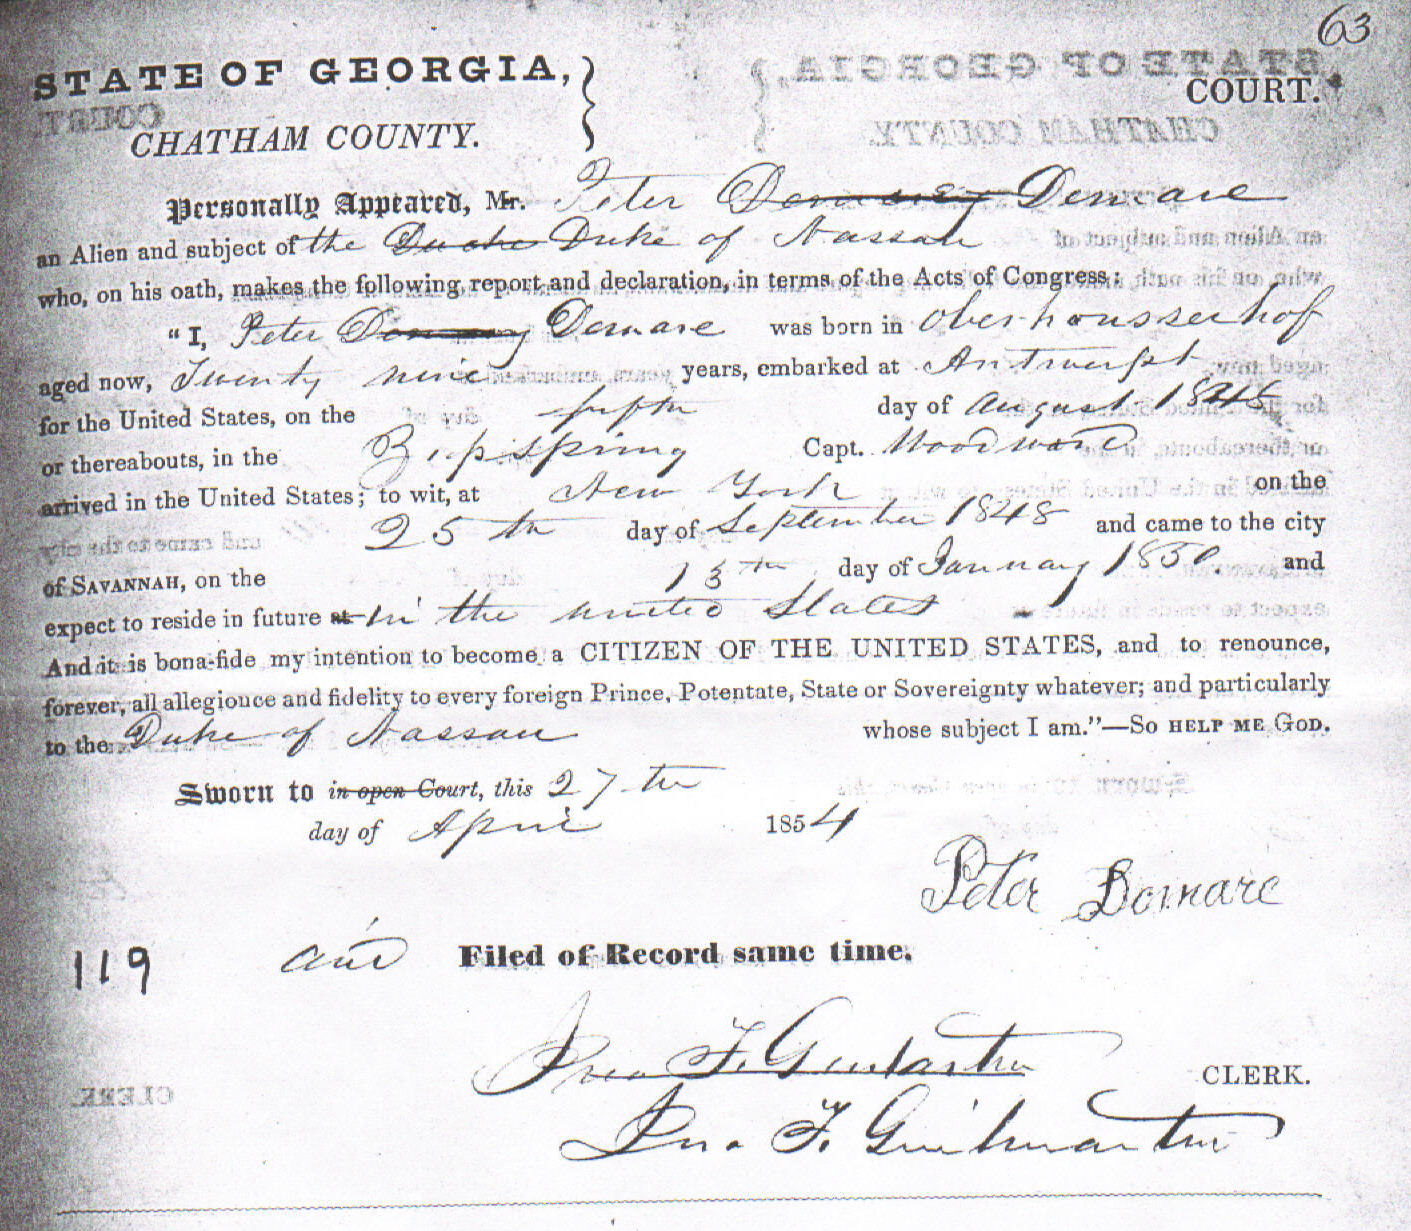 63
STATE OF GEORGIA,
COURT.
CHATHAM COUNTY.
Personally Appeared, Mr. Peter Demare
an Alien and subject of the Duke of Nassau
who, on his oath, makes the following report and declaration, in terms of the Acts of Congress:
"I, Peter Demare was born in Oberhousserhof
aged now, Twenty nine years, embarked at Antwerpt
for the United States, on the fifth day of August 1848
or thereabouts, in the spring Capt. Woodward
arrived in the United States; to wit, at New York on the
25th day of September 1848 and came to the city
of SAVANNAH, on the 13th day of January 1850 and
expect to reside in future at in the united States
And it is bona-fide my intention to become a CITIZEN OF THE UNITED STATES, and to renounce,
forever, all allegionce and fidelity to every foreign Prince, Potentate, State or Sovereignty whatever; and particularly
to the Duke of Nassau whose subject I am."—SO HELP ME GOD.
Sworn to in open Court, this 27th
day of April 1854
Peter Demare
119 and Filed of Record same time.
Jno F. Guilmartin CLERK.
Jno. F. Guilmartin